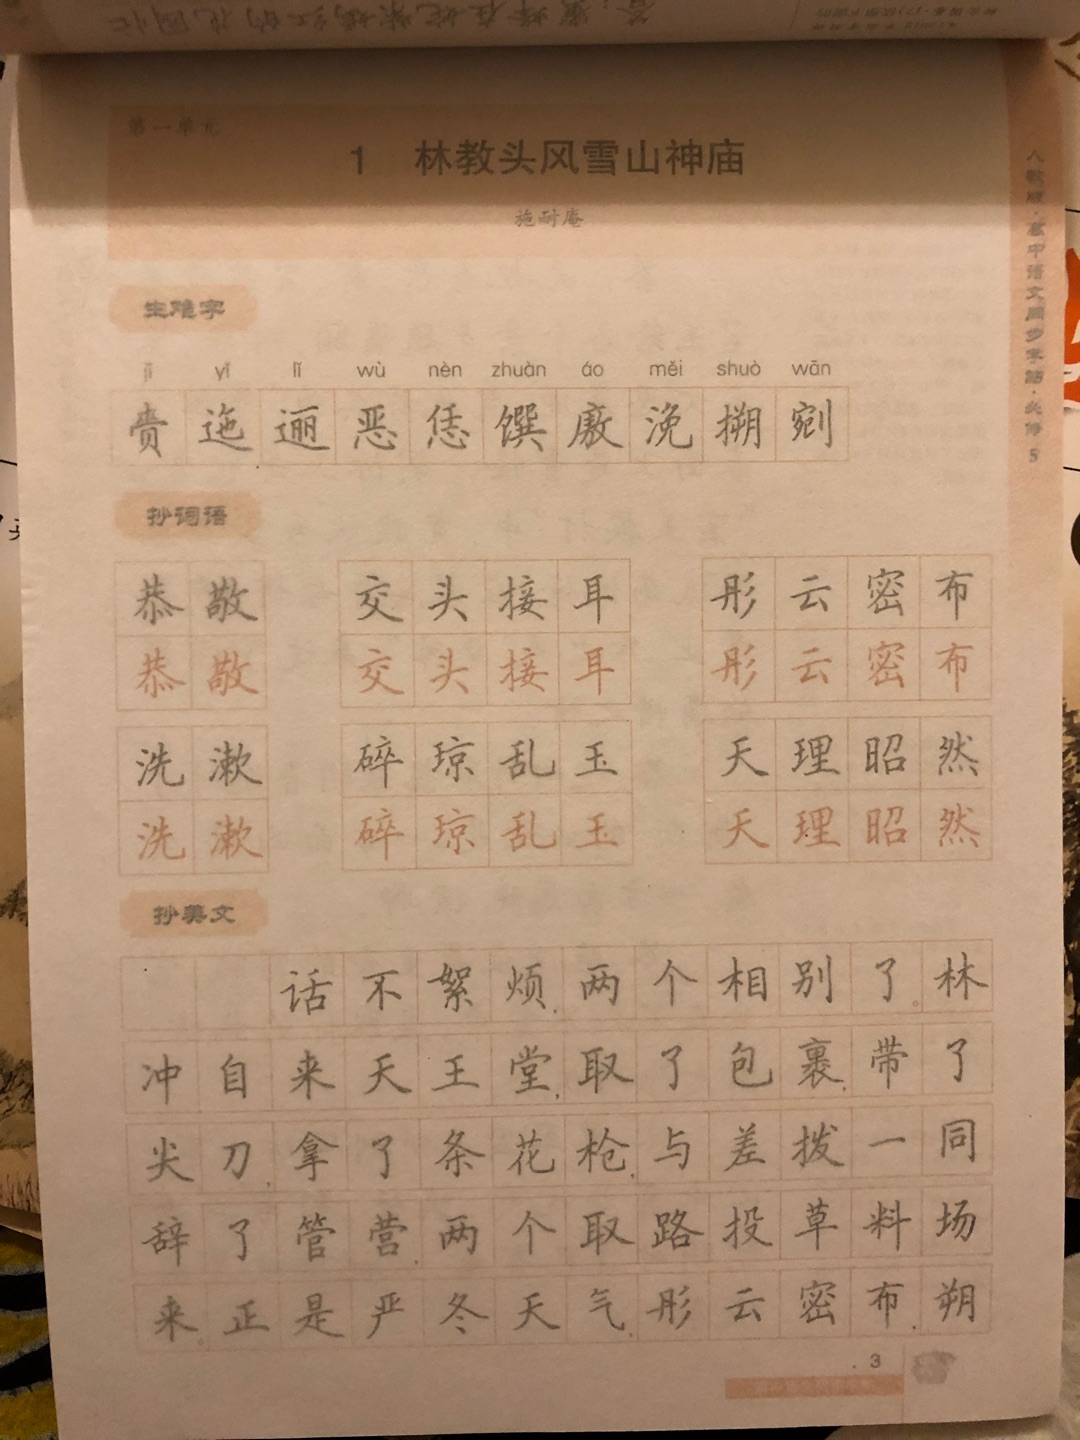 第一单元
1 林教头风雪山神庙
施耐庵
人教版·高中语文同步字帖·必修5
生难字
jī yǐ lǐ wù nèn zhuàn áo měi shuò wān
赍 迤 逦 恶 恁 馔 廒 浼 搠 剜
抄词语
恭敬 交头接耳 彤云密布
恭敬 交头接耳 彤云密布
洗漱 碎琼乱玉 天理昭然
洗漱 碎琼乱玉 天理昭然
抄美文
话不絮烦,两个相别了。林
冲自来天王堂,取了包裹,带了
尖刀,拿了条花枪,与差拨一同
辞了管营,两个取路投草料场
来。正是严冬天气,彤云密布,朔
3